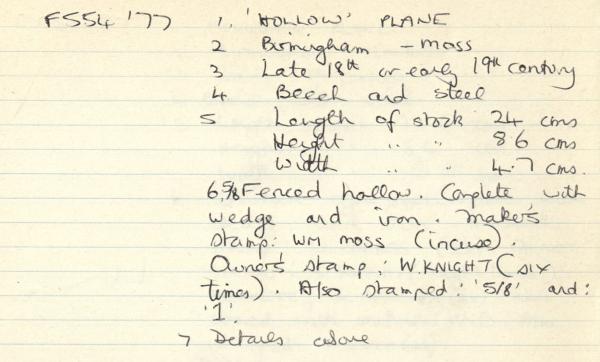 F554 '77 1. 'HOLLOW' PLANE
2 Birmingham - Moss
3 Late 18th or early 19th century
4 Beech and steel
5 Length of stock 24 cms
Height " " 8.6 cms
Width " " 4.7 cms.
6. 5/8 Fenced hollow. Complete with
wedge and iron. Maker's
stamp: WM MOSS (incuse).
Owner's stamp: W. KNIGHT (six
times). Also stamped: '5/8' and:
'1'.
7 Details above